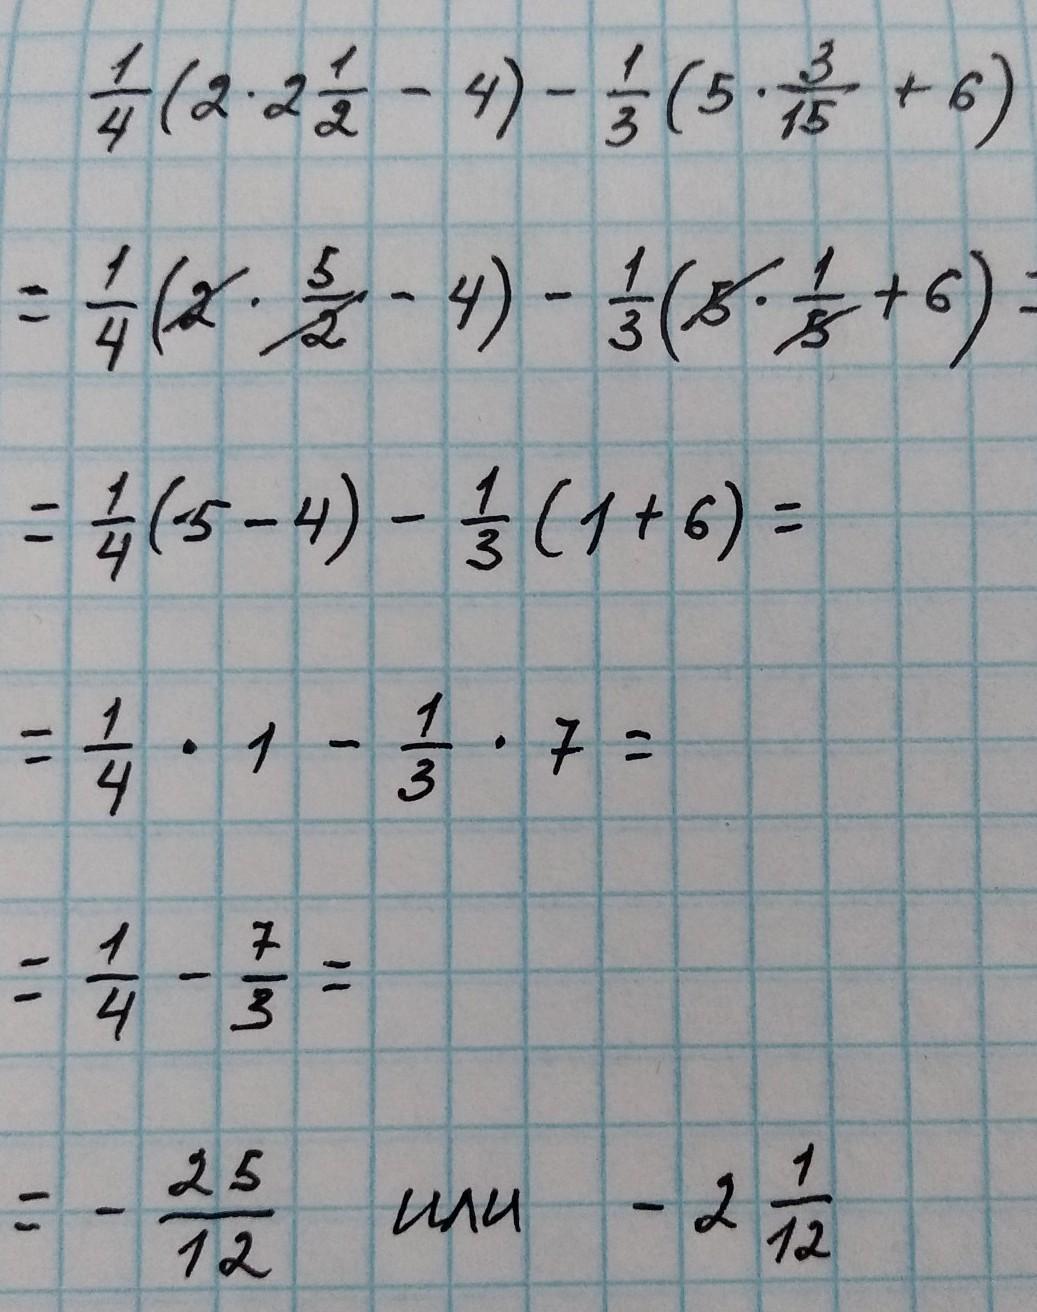 1/4 (2 · 2 1/2 - 4) - 1/3 (5 · 3/15 + 6)
= 1/4 (2 · 5/2 - 4) - 1/3 (5 · 1/5 + 6) =
= 1/4 (5 - 4) - 1/3 (1 + 6) =
= 1/4 · 1 - 1/3 · 7 =
= 1/4 - 7/3 =
= - 25/12 или - 2 1/12